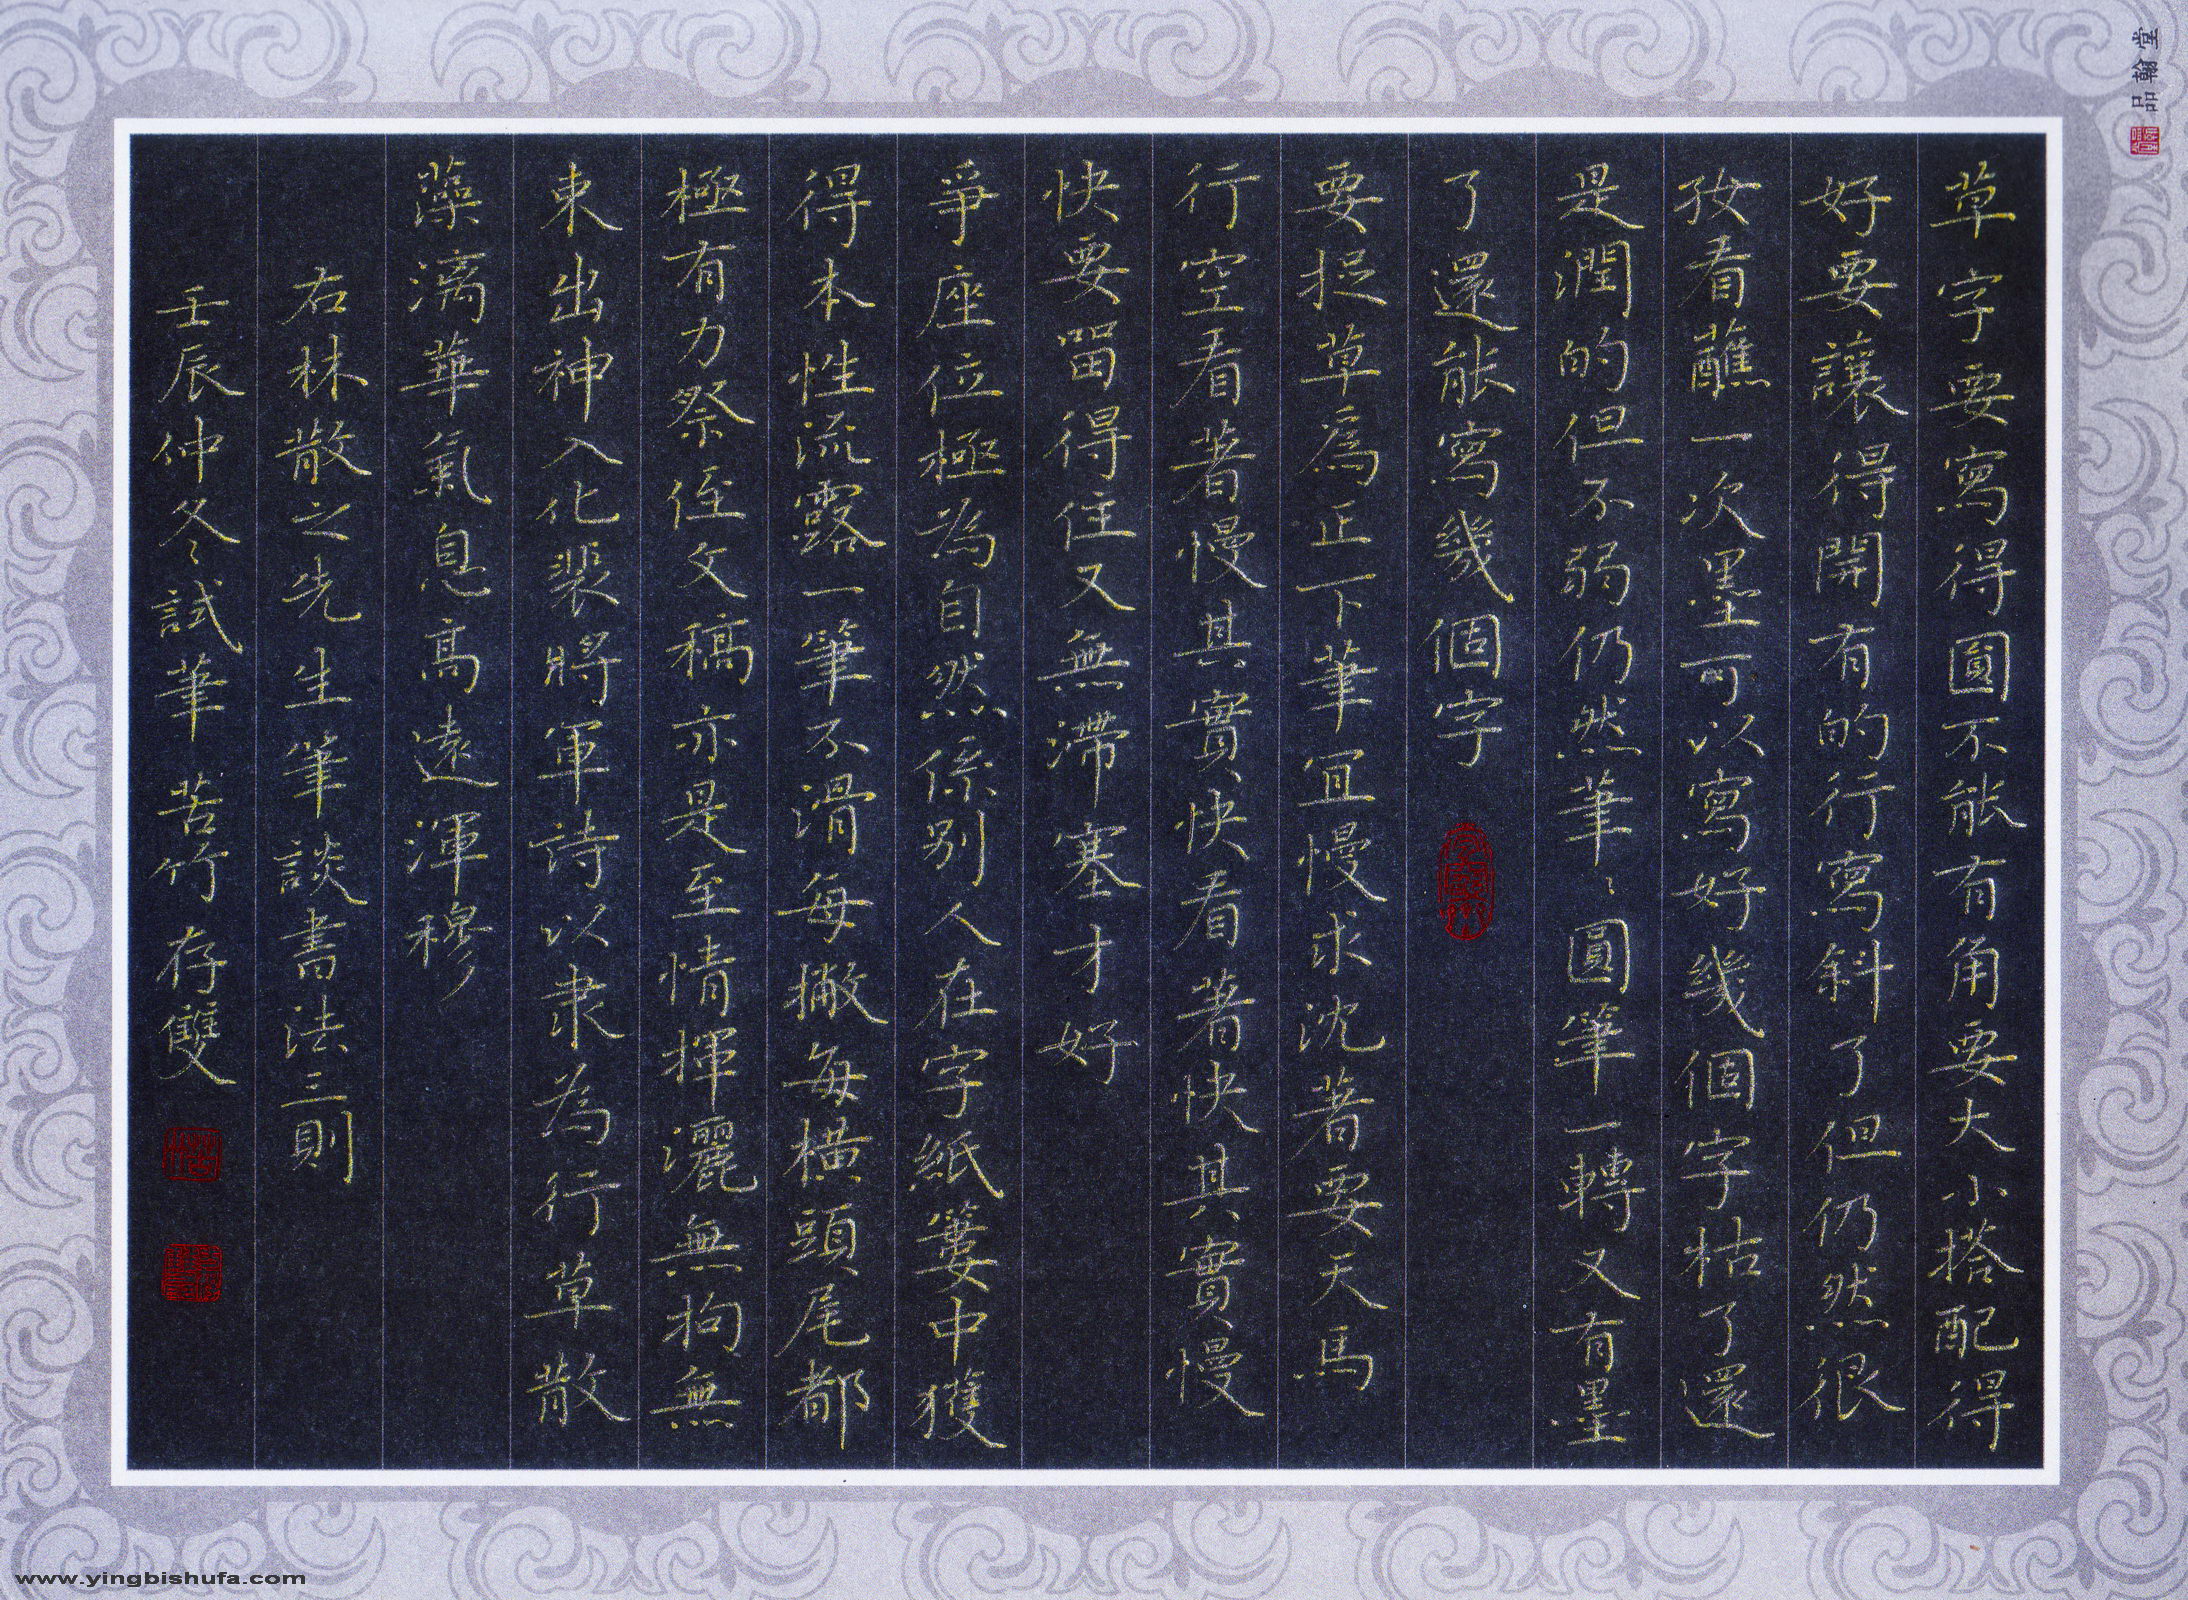 草字要寫得圓不能有角要大小搭配得
好要讓得開有的行寫斜了但仍然很
好看蘸一次墨可以寫好幾個字枯了還
是潤的但不弱仍然筆〻圓筆一轉又有墨
了還能寫幾個字
要捉草為正下筆宜慢求沈著要天馬
行空看著慢其實快看著快其實慢
快要留得住又無滯塞才好
爭座位極為自然係別人在字紙簍中獲
得本性流露一筆不滑每撇每橫頭尾都
極有力祭侄文稿亦是至情揮灑無拘無
束出神入化裴將軍詩以隶為行草散
藻漓華氣息高遠渾穆
右林散之先生筆談書法三則
壬辰仲冬試筆 苦竹存雙
品翰堂
www.yingbishufa.com